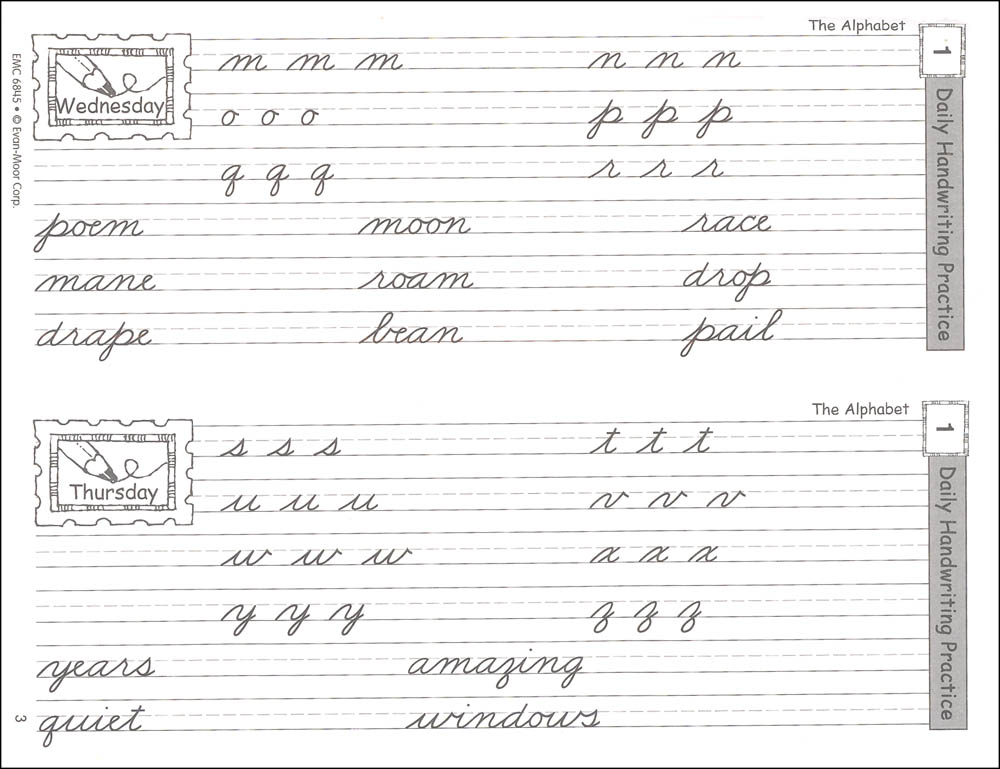 The Alphabet
1
Daily Handwriting Practice
EMC 6845 • © Evan-Moor Corp.
Wednesday
m m m n n n
o o o p p p
q q q r r r
poem moon race
mane roam drop
drape bean pail
The Alphabet
1
Daily Handwriting Practice
Thursday
s s s t t t
u u u v v v
w w w x x x
y y y z z z
years amazing
quiet windows
3